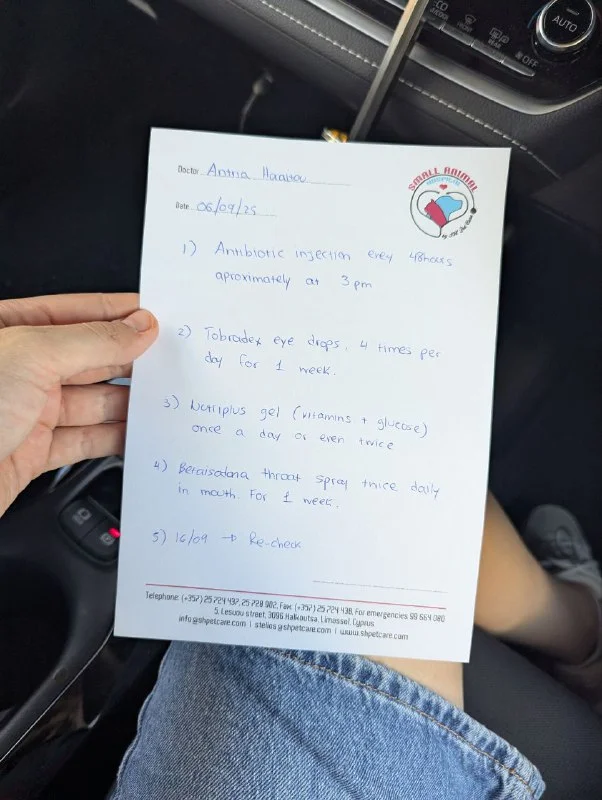 Doctor Antria
Date 06/09/25
SMALL ANIMAL
HOSPITAL
1) Antibiotic injection every 48hours
aproximately at 3pm
2) Tobradex eye drops, 4 times per
day for 1 week.
3) Nutriplus gel (vitamins + glucose)
once a day or even twice
4) throat spray twice daily
in mouth. For 1 week.
5) 16/09 → Re-check
Telephone: (+357) 25 724 437, 25 728 982, Fax: (+357) 25 724 438, For emergencies 99 664 080
5, Lesvou street, 3096 Halkoutsa, Limassol, Cyprus
info@shpetcare.com | stelios@shpetcare.com | www.shpetcare.com
AUTO
FRONT
REAR
OFF